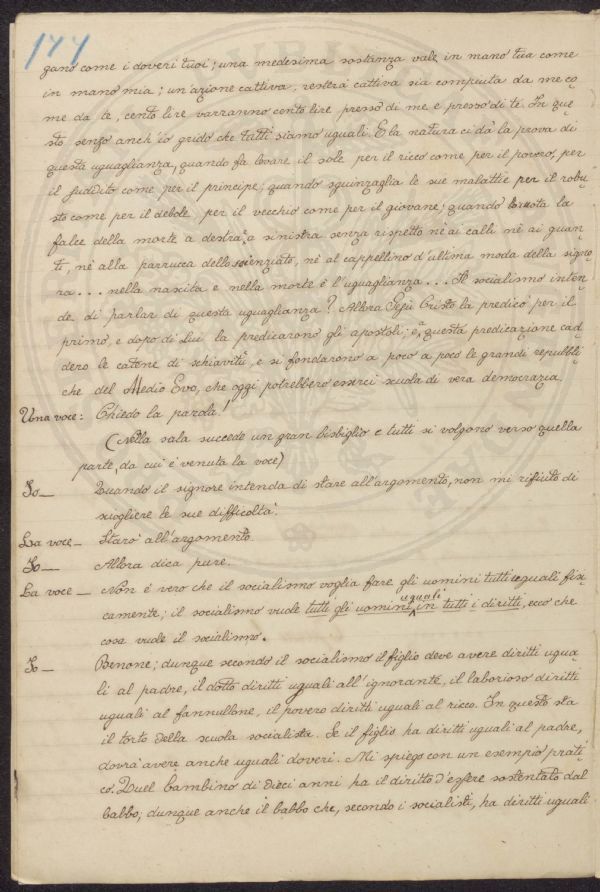 177
gano come i doveri tuoi; una medesima sostanza vale in mano tua come
in mano mia; un'azione cattiva, resterà cattiva sia compiuta da me co-
me da te, cento lire varranno cento lire presso di me e presso di te. In que-
sto senso anch'io grido che tutti siamo uguali. E la natura ci dà la prova di
questa uguaglianza, quando fa levare il sole per il ricco come per il povero, per
il suddito come per il principe; quando sguinzaglia le sue malattie per il robu-
sto come per il debole, per il vecchio come per il giovane; quando ruota la
falce della morte a destra, a sinistra senza rispetto nè ai calli nè ai guan-
ti, nè alla parrucca dello scienziato, nè al cappellino d'ultima moda della signo-
ra... nella nascita e nella morte è l'uguaglianza... Il socialismo inten-
de di parlar di questa uguaglianza? Allora Gesù Cristo la predicò per il
primo, e dopo di Lui la predicarono gli apostoli; e, a questa predicazione cad-
dero le catene di schiavitù, e si fondarono a poco a poco le grandi repubbli-
che del Medio Evo, che oggi potrebbero esserci scuola di vera democrazia.
Una voce: Chiedo la parola!
(Nella sala succede un gran bisbiglio e tutti si volgono verso quella
parte, da cui è venuta la voce)
Io — Quando il signore intenda di stare all'argomento, non mi rifiuto di
sciogliere le sue difficoltà.
La voce — Starò all'argomento.
Io — Allora dica pure.
La voce — Non è vero che il socialismo voglia fare gli uomini tutti uguali fisi-
camente; il socialismo vuole tutti gli uomini uguali in tutti i diritti, ecco che
cosa vuole il socialismo.
Io — Benone; dunque secondo il socialismo il figlio deve avere diritti ugua-
li al padre, il dotto diritti uguali all'ignorante, il laborioso diritti
uguali al fannullone, il povero diritti uguali al ricco. In questo sta
il torto della scuola socialista. Se il figlio ha diritti uguali al padre,
dovrà avere anche uguali doveri. Mi spiego con un esempio prati-
co. Quel bambino di dieci anni ha il diritto d'essere sostentato dal
babbo; dunque anche il babbo che, secondo i socialisti, ha diritti uguali